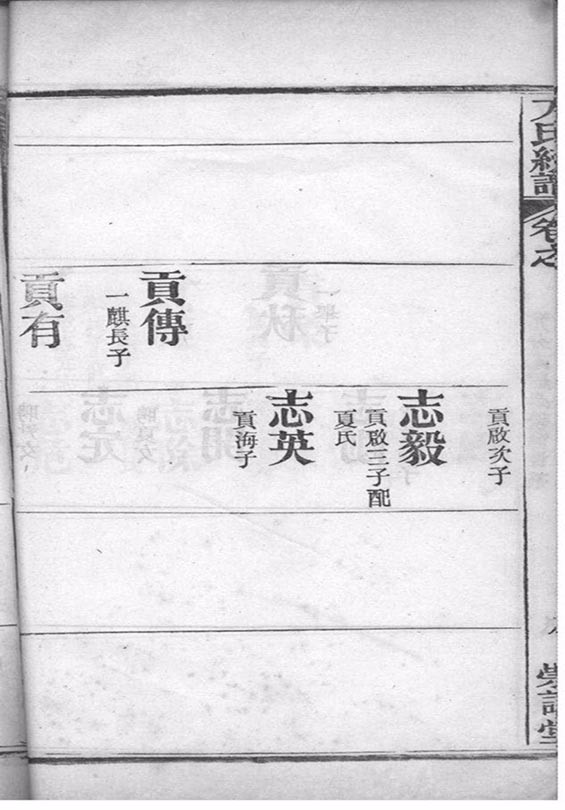 氏經譜
卷之
崇誼堂
貢啟次子
志毅
貢啟三子配
夏氏
志英
貢海子
貢傳
一麒長子
貢有